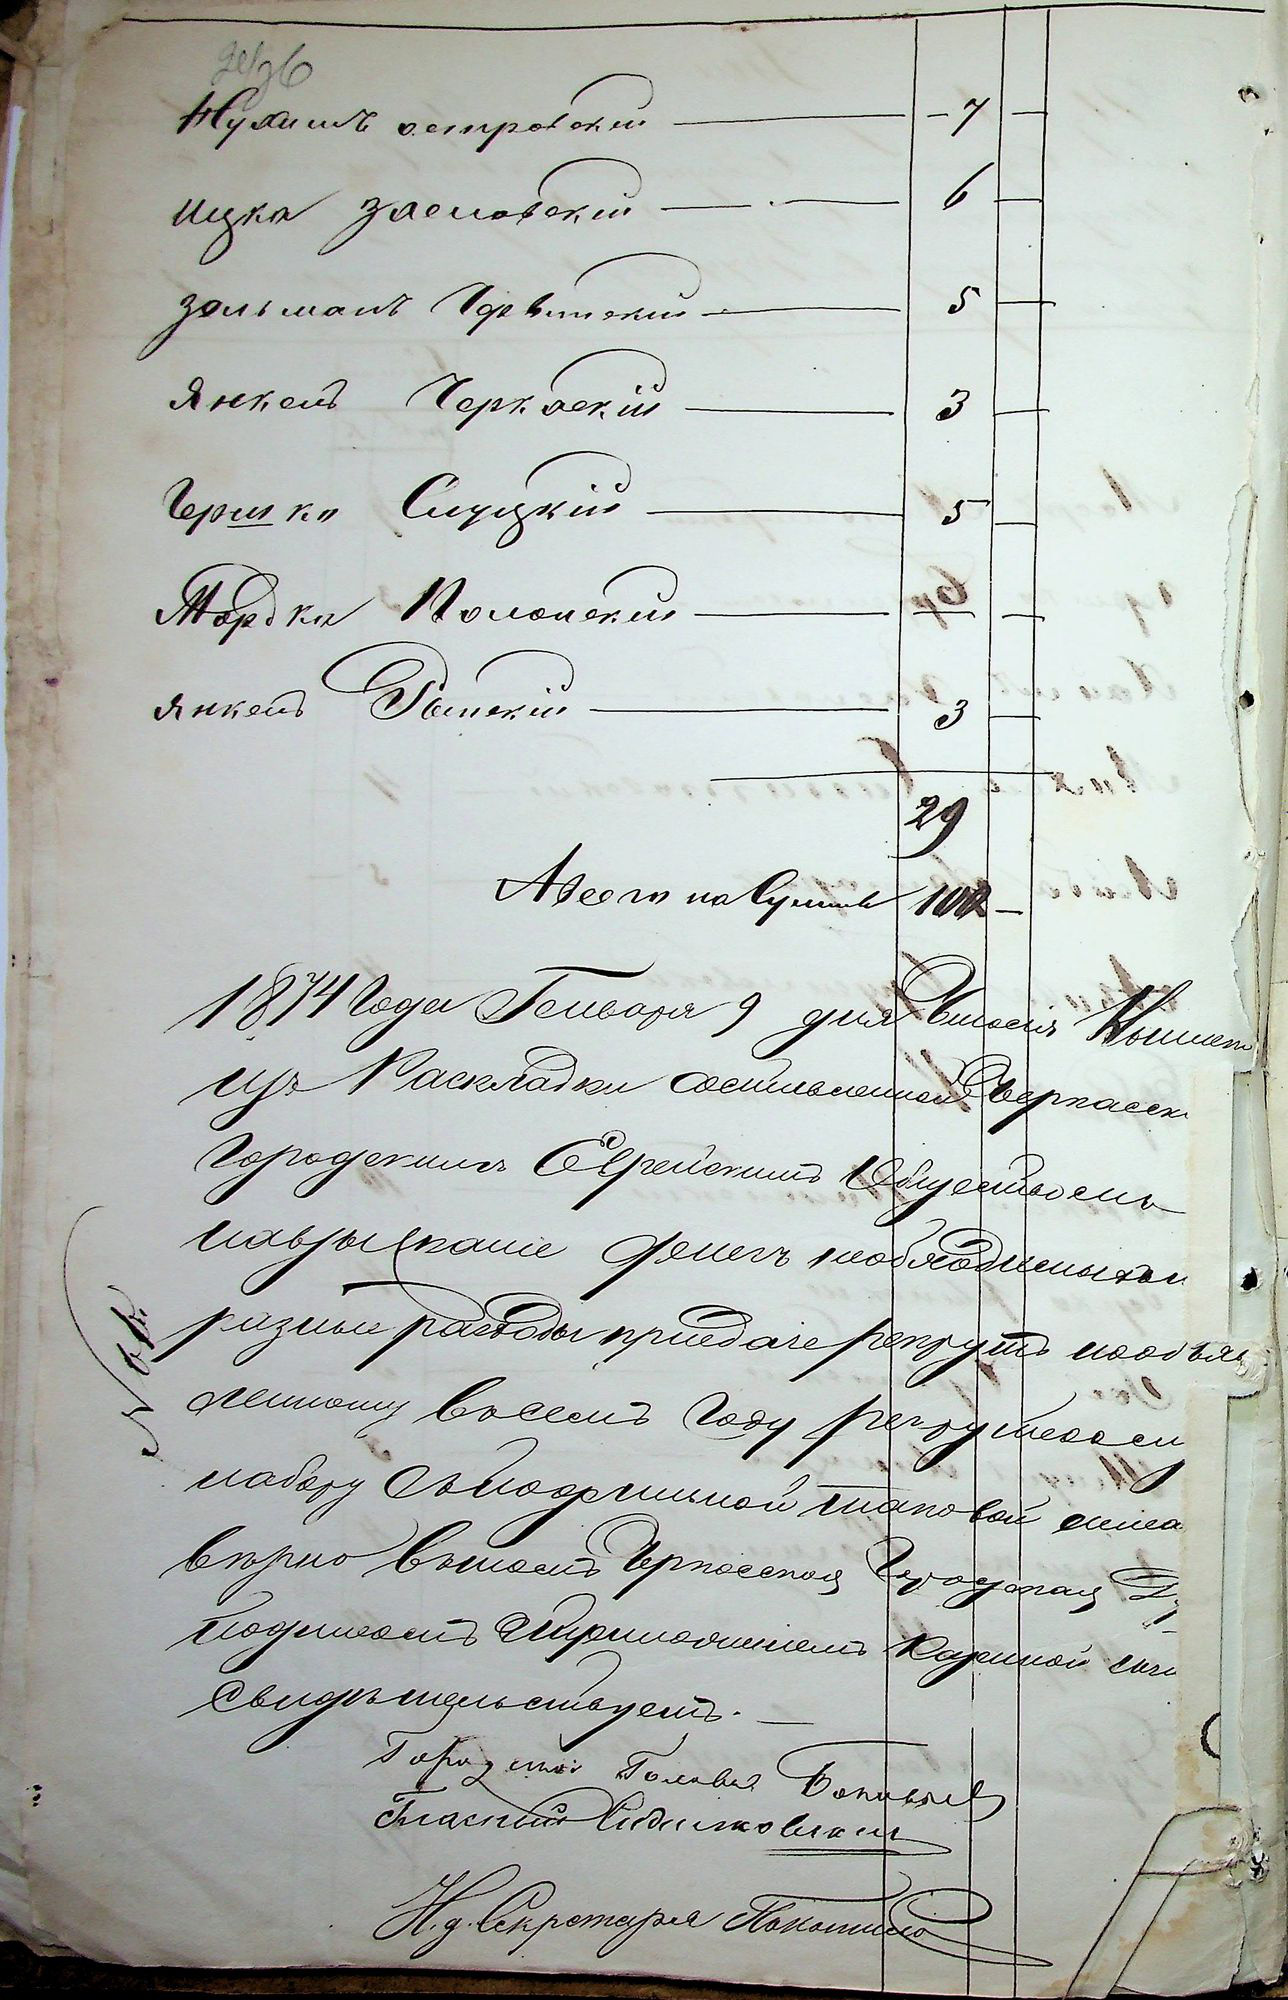 Нухимъ островскій — 7 —
Ицка заславскій — 6 —
Зольманъ Чернинскій — 5 —
Янкель Черкаскій — 3 —
Гершко Слуцкій — 5 —
Мордко Полонскій —
Янкель Рыпскій — 3 —
29
Всего на Сумму 102 —
1874 Года Генваря 9 дня
изъ Раскладки составленной Черкасск
Городскимъ Еврейскимъ Обществомъ
на взысканіе денегъ необходимыхъ
разные расходы при сдаче рекрутъ по объяв
ленному въ семъ Году рекрутском
набору
верно въ томъ Черкасская Городская Ду
подписомъ и приложеніемъ Казенной печа
свидетельствуетъ. —
Городской Голова
Гласный
И. д. Секретаря